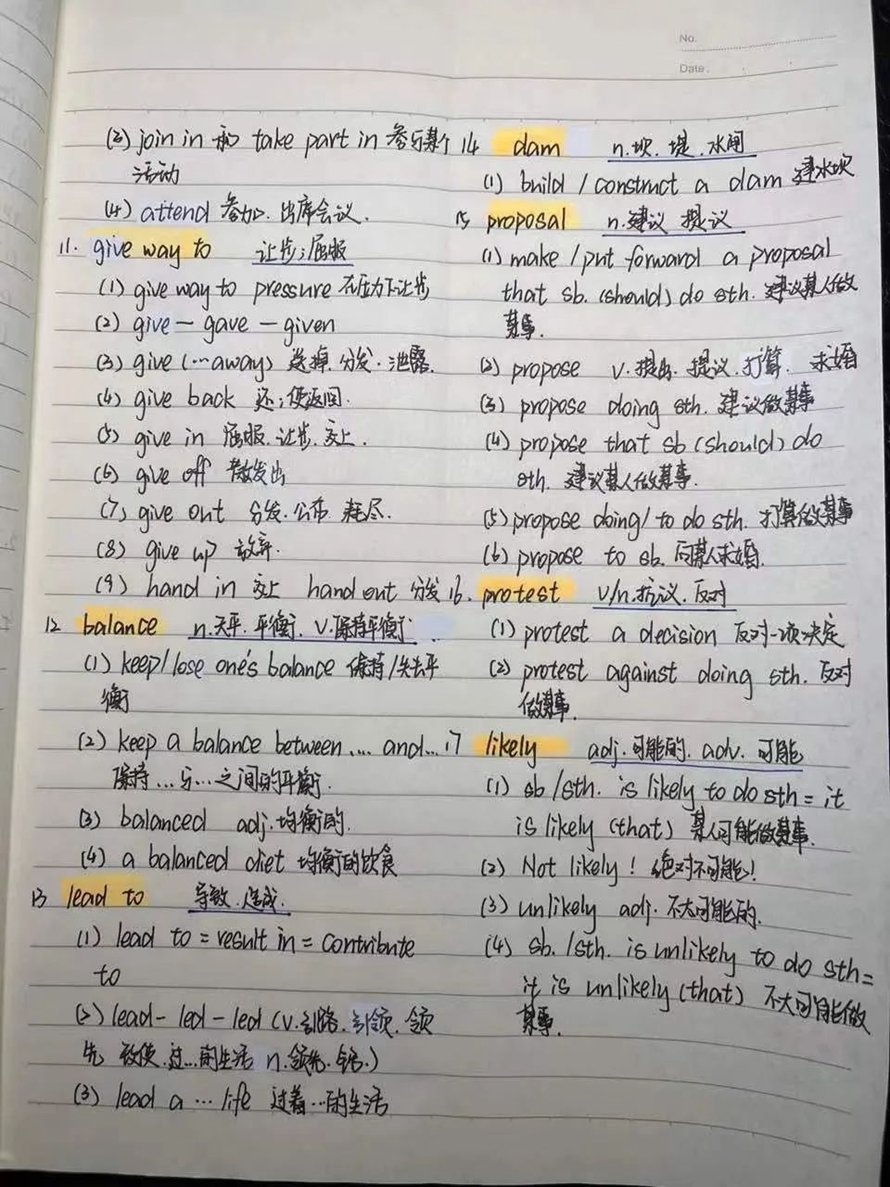 No.
Date.
(3) join in 和 take part in 参与某个
活动
(4) attend 参加、出席会议.
11. give way to 让步;屈服
(1) give way to pressure 在压力下让步
(2) give - gave - given
(3) give (…away) 送掉.分发.泄露.
(4) give back 还;使返回.
(5) give in 屈服.让步.交上.
(6) give off 散发出
(7) give out 分发.公布.耗尽.
(8) give up 放弃.
(9) hand in 交上 hand out 分发
12 balance n.天平.平衡. v.保持平衡
(1) keep/lose one's balance 保持/失去平
衡
(2) keep a balance between .... and...
保持...与...之间的平衡.
(3) balanced adj.均衡的.
(4) a balanced diet 均衡的饮食
13 lead to 导致.造成.
(1) lead to = result in = contribute
to
(2) lead - led - led (v.引路.引领.领
先 致使.过...的生活 n.领先.铅.)
(3) lead a ... life 过着...的生活
14 dam n.坝.堤.水闸
(1) build / construct a dam 建水坝
15 proposal n.建议 提议
(1) make /put forward a proposal
that sb. (should) do sth. 建议某人做
某事.
(2) propose v.提出.提议.打算.求婚
(3) propose doing sth. 建议做某事
(4) propose that sb (should) do
sth. 建议某人做某事.
(5) propose doing/ to do sth. 打算做某事
(6) propose to sb. 向某人求婚.
16. protest v/n.抗议.反对
(1) protest a decision 反对一项决定
(2) protest against doing sth. 反对
做某事.
17 likely adj.可能的. adv.可能
(1) sb /sth. is likely to do sth = it
is likely (that) 某人可能做某事.
(2) Not likely! 绝对不可能!
(3) unlikely adj. 不大可能的.
(4) sb. /sth. is unlikely to do sth=
it is unlikely (that) 不大可能做
某事.